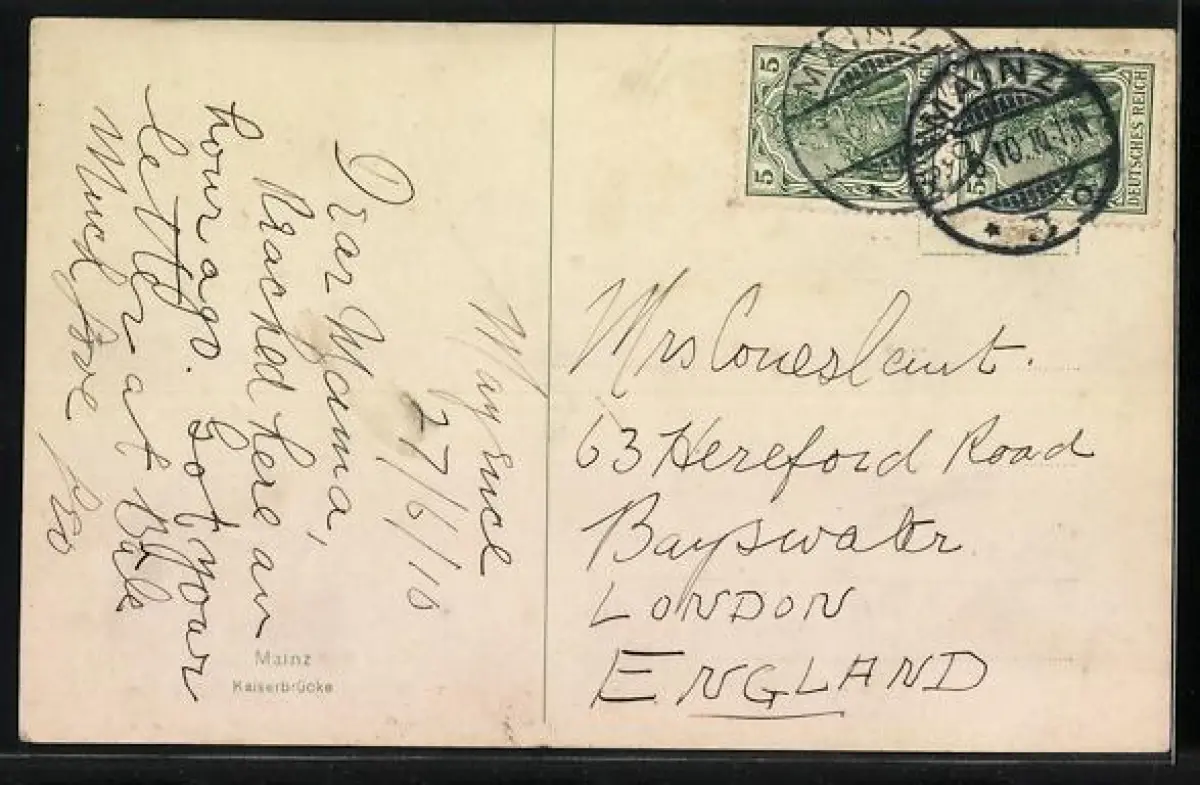 Mayence
27/6/10
Dear Mama,
Reached here an
hour ago. Got your
letter at Bâle
Much love
Mainz
Kaiserbrücke
5
5
MAINZ
MAINZ
DEUTSCHES REICH
Mrs
63 Hereford Road
Bayswater
LONDON
ENGLAND